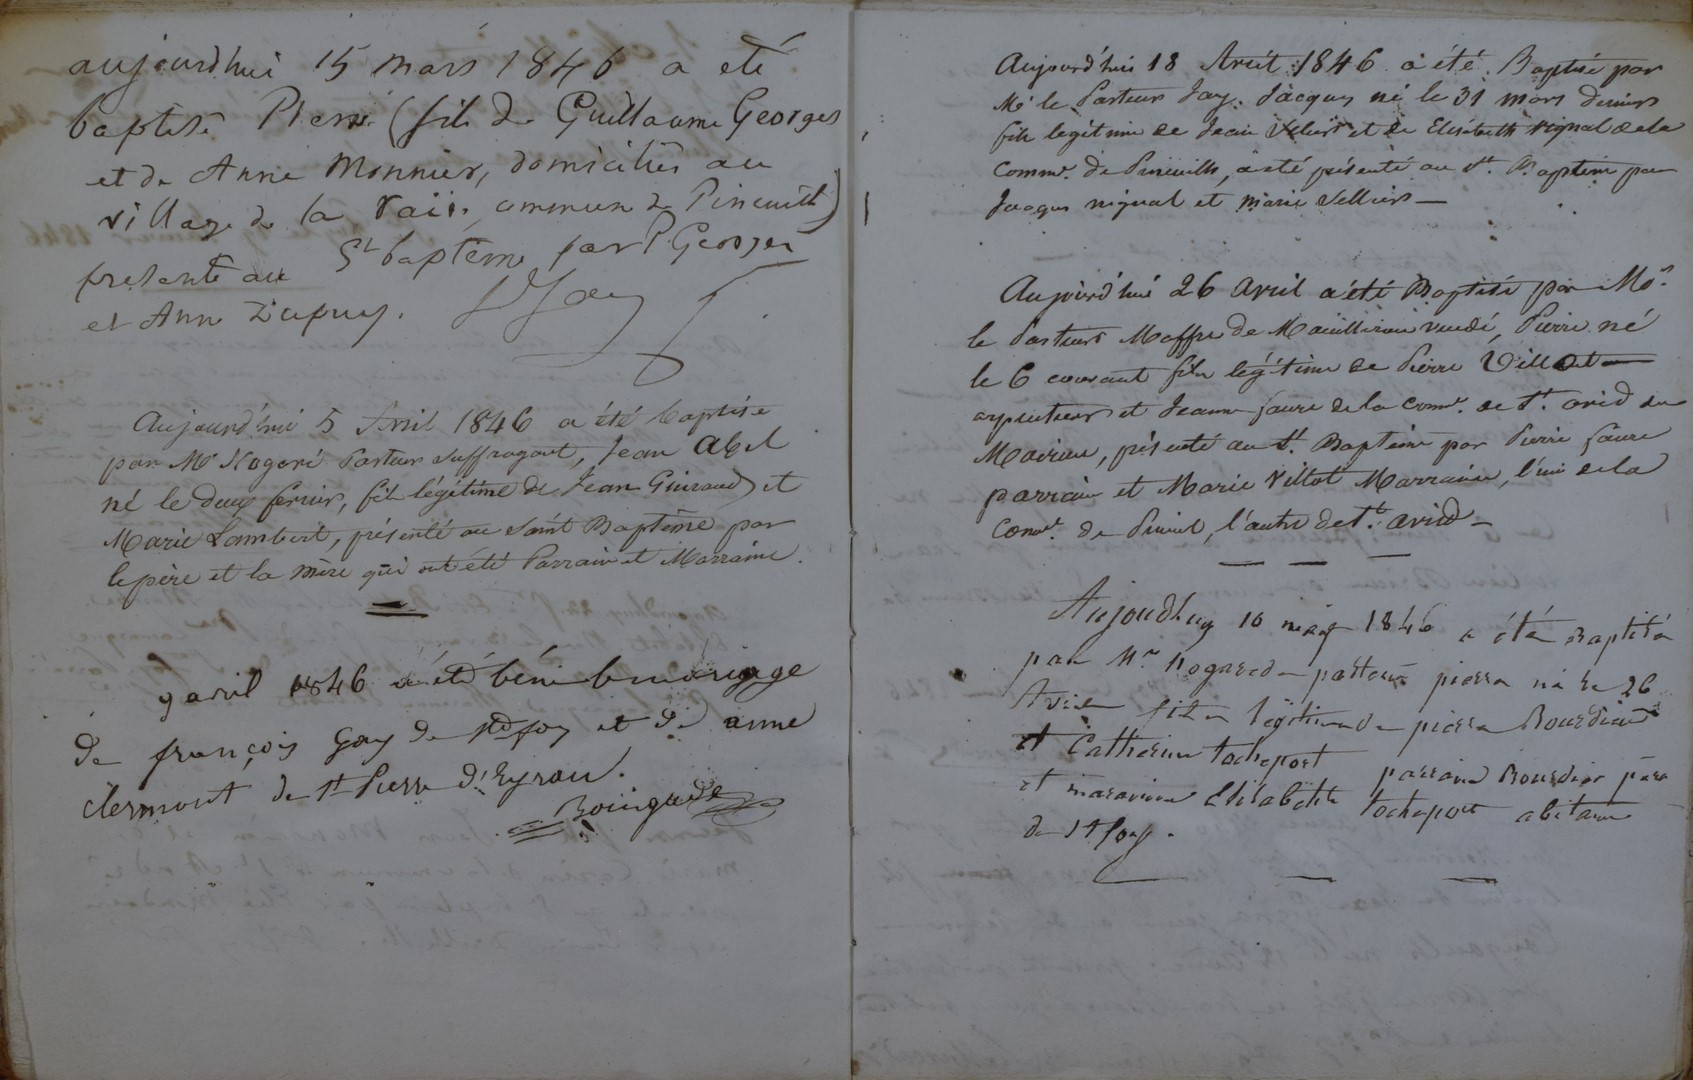 aujourdhui 15 mars 1846 a été
baptisé Pierre (fils de Guillaume Georges
et de Anne Monnier, domiciliés au
village de la commune de Pineuilh)
présenté au St baptême par P. Georges
et Anne Dupuy.
Aujourd'hui 5 Avril 1846 a été baptisé
par Mr Nogaré Pasteur suffragant, Jean Abel
né le deux fevrier, fils légitime de Jean Guiraud et
Marie Lambert, présenté au saint Baptême par
le père et la mère qui ont été Parrain et Marraine.
9 avril 1846 a été béni le mariage
de françois Gay de Ste foy et de anne
clermont de St Pierre d'Eyraud.
Aujourd'hui 18 Avril 1846 a été Baptisé par
Mr le Pasteur Jay. Jacques né le 31 mars dernier
fils legitime de Jean et de Elisabeth vignal de la
Comme. de Pineuilh, a été présenté au St. Baptême par
Jacques vignal et marie
Aujourd'hui 26 avril a été Baptisé par Mor.
le Pasteur Maffre de Pierre né
le 6 courant fils légitime de Pierre Villot
arpenteur et Jeanne faure de la comme. de St. avid du
présenté au St. Baptême par Pierre faure
parrain et Marie Villot Marraine, l'un de la
Comme. de l'autre de St. avid
Aujoudhuy 10 may 1846 a été Baptisé
par Mr Nogarede pasteur pierre né le 26
Avril fils légitime de pierre Bourdier
et Catherine tocheport parrain Bourdier père
et maraine Elisabeth tocheport abitant
de Ste foy.